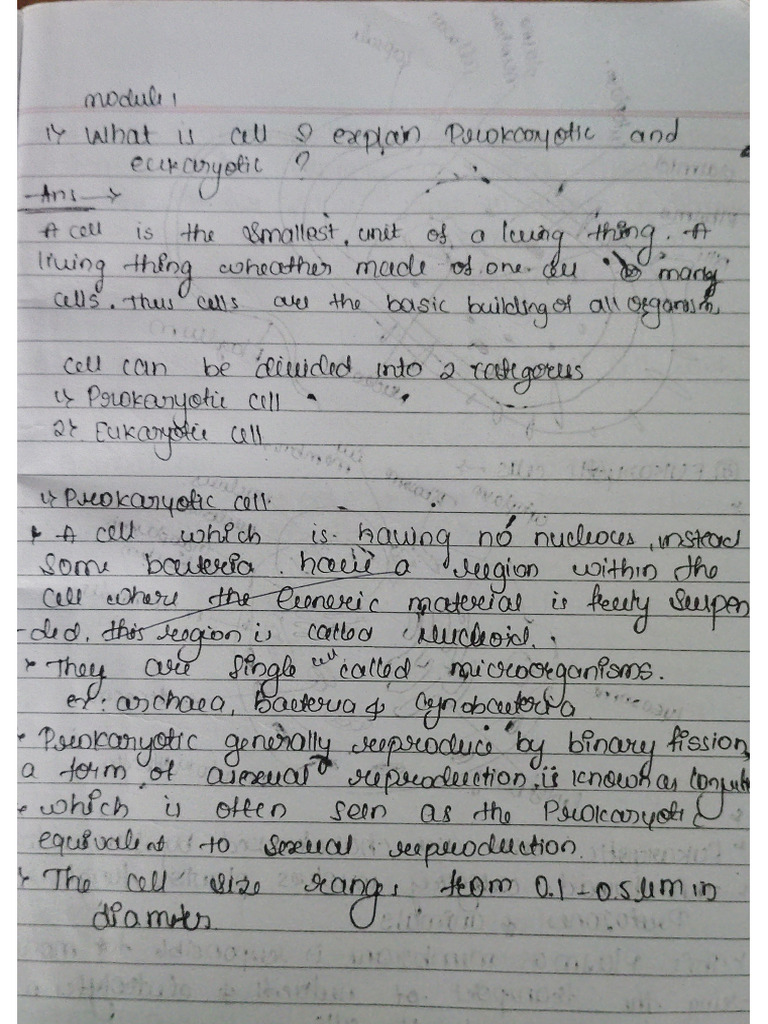 module 1
1) What is cell ? explain Prokaryotic and
eukaryotic ?
Ans →
A cell is the smallest unit of a living thing. A
living thing wheather made of one or many
cells. Thus cells are the basic building of all organism,
cell can be divided into 2 categories
1) Prokaryotic cell
2) Eukaryotic cell
1) Prokaryotic cell.
A cell which is having no nucleous, instead
some bacteria have a region within the
cell where the Generic material is freely suspen
-ded, this region is called Nucleoid.
They are single cell called microorganisms.
ex: archaea, Bacteria & Cynobacteria
Prokaryotic generally reproduce by binary fission,
a form of asexual reproduction, is known as
which is often seen as the Prokaryotic
equivalent to sexual reproduction.
The cell size range, from 0.1 - 0.5 μm in
diameter